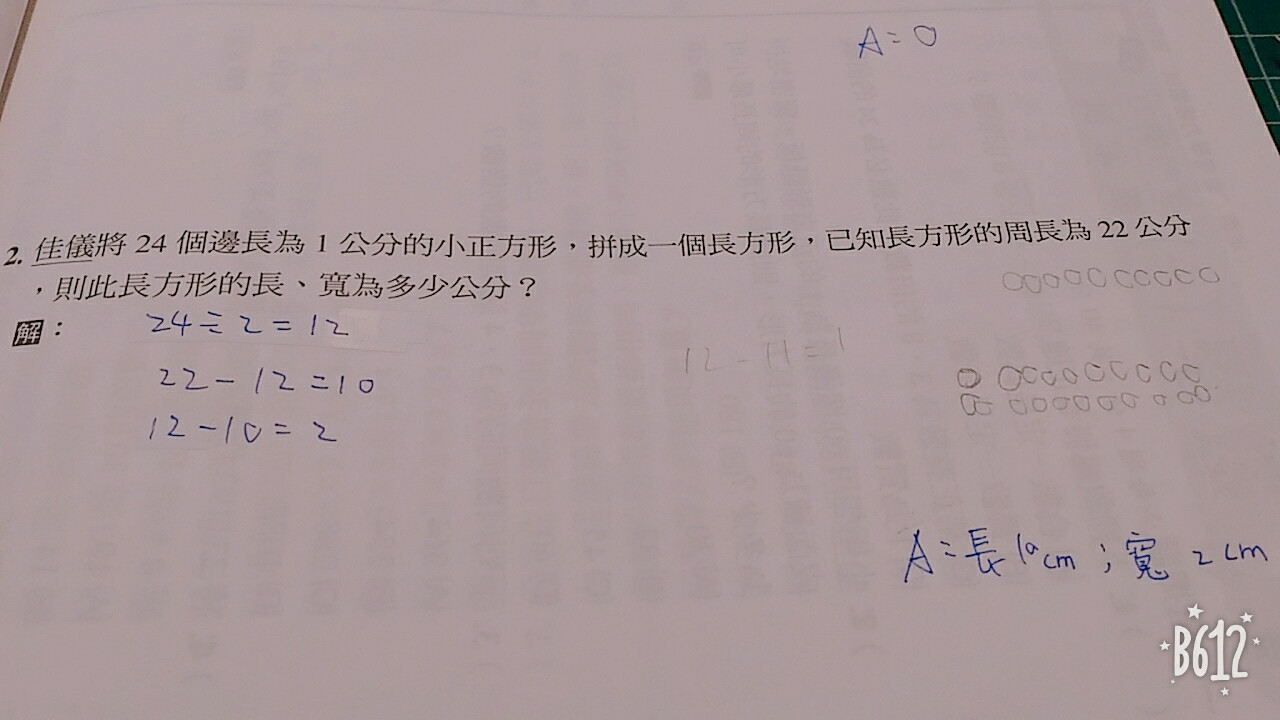 A = 0
2. 佳儀將 24 個邊長為 1 公分的小正方形，拼成一個長方形，已知長方形的周長為 22 公分
，則此長方形的長、寬為多少公分？
解：
24÷2=12
12-11=1
22-12=10
12-10=2
A=長10cm；寬 2cm
B612